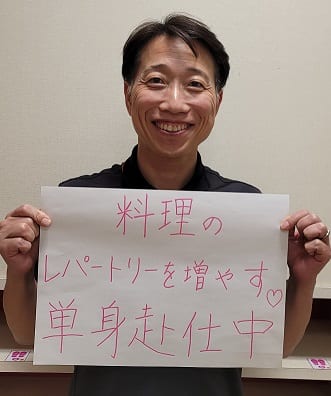 料理の
レパートリーを増やす♡
単身赴任中